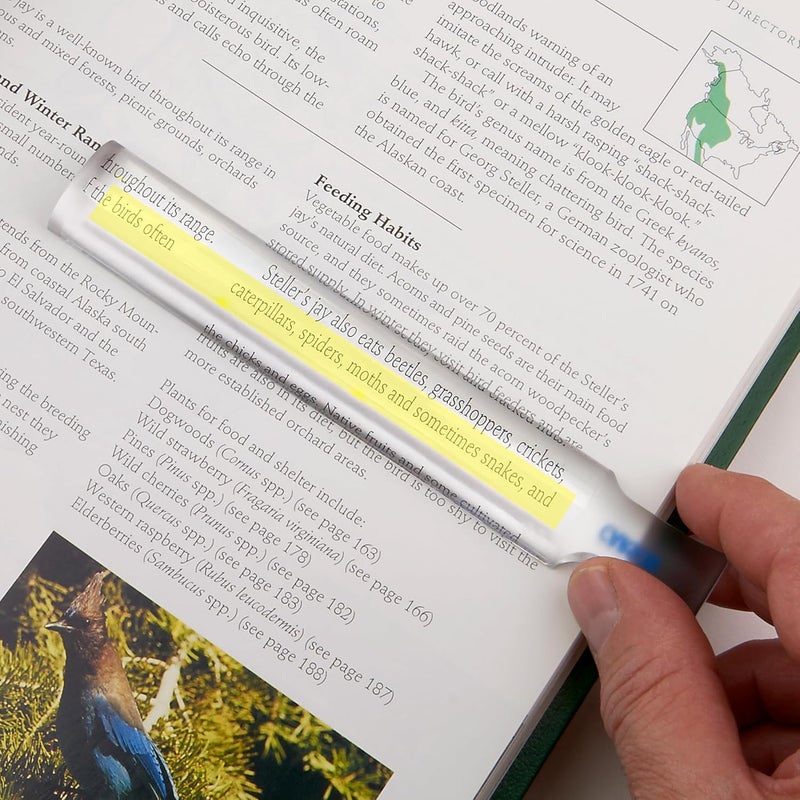 DIRECTORY
jay is a well-known bird throughout its range in
and mixed forests, picnic grounds, orchards
and Winter Ran
sident year-roun
small number
nds.
tends from the Rocky Moun-
from coastal Alaska south
o El Salvador and the
southwestern Texas.
ing the breeding
nest they
nishing
inquisitive, the
boisterous bird. Its low-
and calls echo through the
tations,
often roam
throughout its range.
f the birds often
Plants for food and shelter include:
Dogwoods (Cornus spp.) (see page 163)
Wild strawberry (Fragaria virginiana) (see page 166)
Pines (Pinus spp.) (see page 178)
Wild cherries (Prunus spp.) (see page 182)
Oaks (Quercus spp.) (see page 183)
Western raspberry (Rubus leucodermis) (see page 187)
Elderberries (Sambucus spp.) (see page 188)
oodlands warning of an
approaching intruder. It may
imitate the screams of the golden eagle or red-tailed
hawk, or call with a harsh rasping "shack-shack-
shack-shack" or a mellow "klook-klook-klook."
The bird's genus name is from the Greek kyanos,
blue, and kitta, meaning chattering bird. The species
is named for Georg Steller, a German zoologist who
obtained the first specimen for science in 1741 on
the Alaskan coast.
Feeding Habits
Vegetable food makes up over 70 percent of the Steller's
jay's natural diet. Acorns and pine seeds are their main food
source, and they sometimes raid the acorn woodpecker's
stored supply. In winter they visit bird feeders. Insects are
Steller's jay also eats beetles, grasshoppers, crickets,
caterpillars, spiders, moths and sometimes snakes, and
the chicks and eggs. Native fruits and some cultivated
fruits are also in its diet, but the bird is too shy to visit the
more established orchard areas.